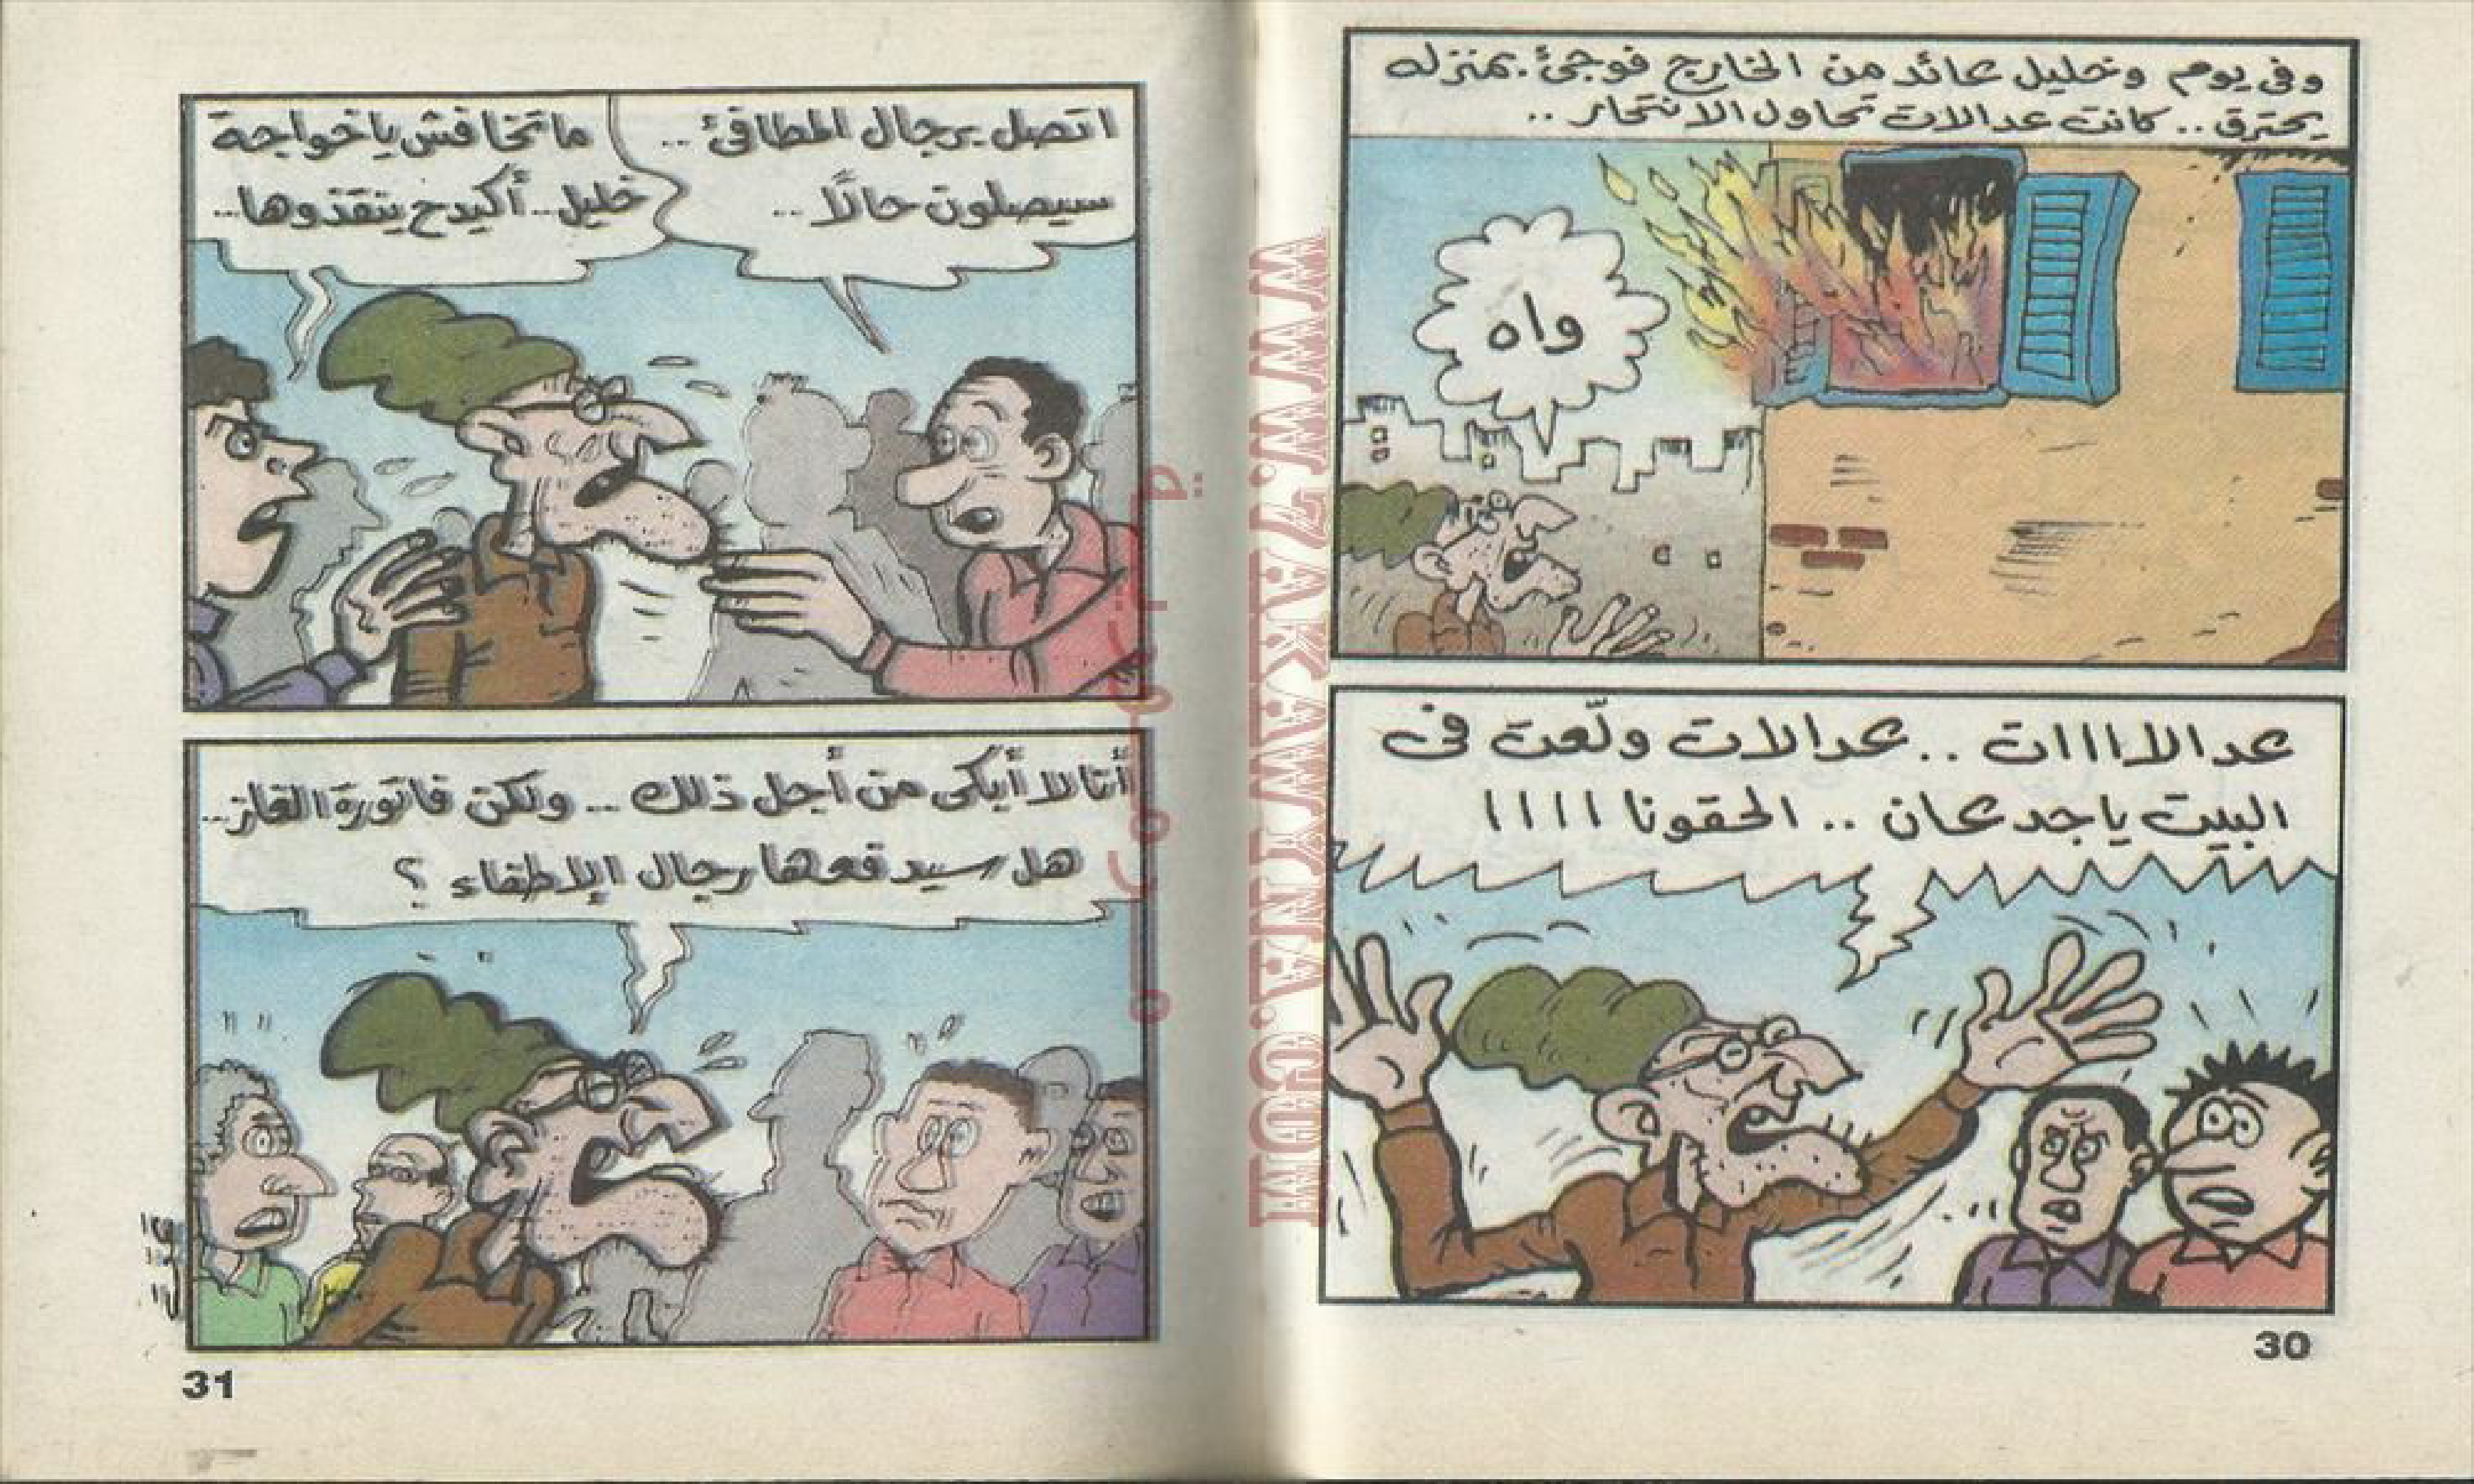 وفى يوم وخليل عائد من الخارج فوجئ بمنزله
يحترق .. كانت عدالات تحاول الانتحار ..
واه
عدالاااات .. عدالات ولّعت فى
البيت ياجدعان .. الحقونا اااا
30
اتصل برجال المطافئ ..
سيصلون حالاً ..
ماتخافش ياخواجة
خليل .. أكيدح ينقذوها ..
أنا لا أبكى من أجل ذلك ... ولكن فاتورة الغاز ..
هل سيدفعها رجال الإطفاء ؟
31